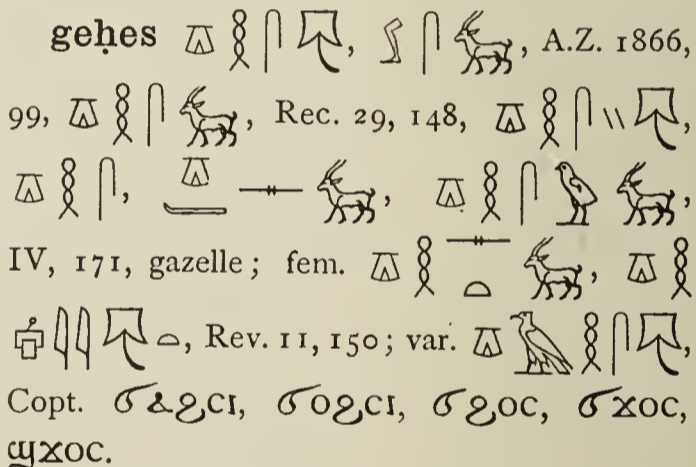 geḥes 𓎼𓎛𓋴𓄛, 𓂾𓋴𓃴, A.Z. 1866,
99, 𓎼𓎛𓋴𓃴, Rec. 29, 148, 𓎼𓎛𓋴𓏭𓄛,
𓎼𓎛𓋴, 𓎼𓐝𓊃𓃴, 𓎼𓎛𓋴𓅱𓃴,
IV, 171, gazelle; fem. 𓎼𓎛𓊃𓏏𓃴, 𓎼𓎛
𓇋𓇋𓄛𓏏, Rev. 11, 150; var. 𓎼𓄿𓎛𓋴𓄛,
Copt. ϭⲁϩⲥⲓ, ϭⲟϩⲥⲓ, ϭϩⲟⲥ, ϭϫⲟⲥ,
ϣϫⲟⲥ.